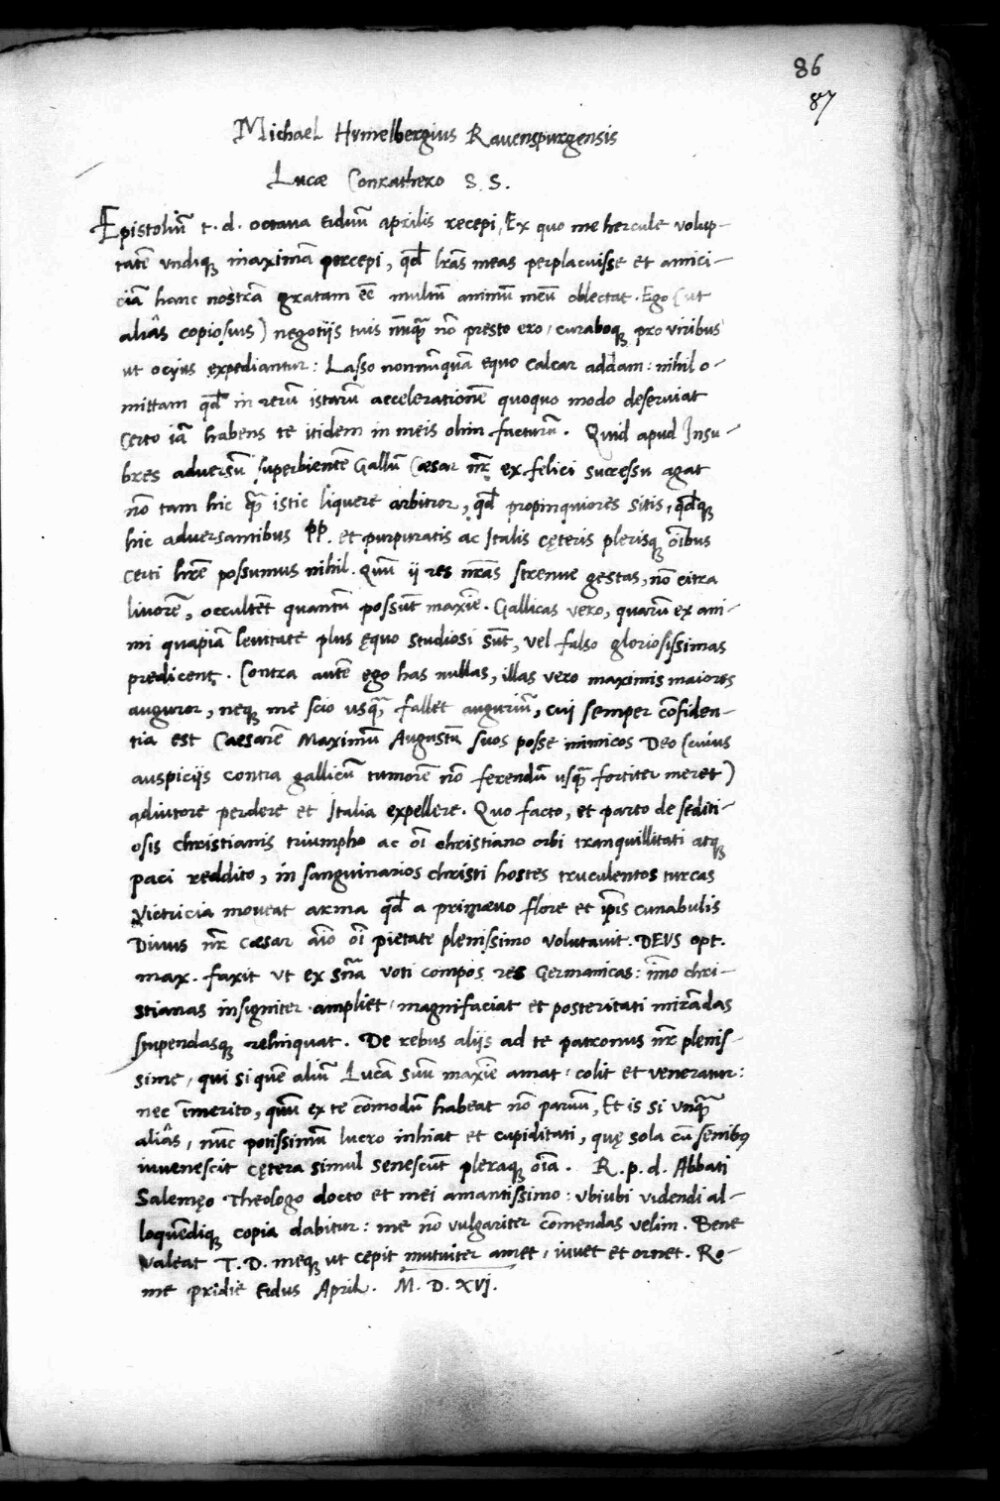 86
87
Michael Hvmelbergius Rauenspurgensis
Lucæ Conrathero S. S.
Epistoliũ t. d. octaua eiduũ aprilis recepi, Ex quo me hercule volup-
tatẽ vndiqꝫ maximã percepi, qđ lr̃as meas perplacuisse et amici-
ciã hanc nostrã gratam eẽ multũ animũ meũ oblectat. Ego (ut
aliâs copiosius) negotijs tuis nũqꝫ̃ nõ presto ero, curaboqꝫ pro viribus
ut ocyus expediantur: Lasso nonnũquã equo calcar addam: nihil o-
mittam qđ in rerũ istarũ accelerationẽ quoquo modo deseruiat
Certo iã habens te itidem in meis olim facturũ. Quid apud Insu-
bres aduersũ superbientẽ Gallũ Cæsar nr̃ ex felici sucessu agat
nõ tam hic qꝫ̃ istic liquere arbitror, qđ propinquiores sitis, qđqꝫ
hic aduersantibus pp. et purpuratis ac Italis cęteris plerisqꝫ oĩbus
Certi hr̃e possumus nihil. Quũ ij res nr̃as strenue gestas, nõ citra
liuorẽ, occultẽt quantũ possũt maxĩe. Gallicas vero, quarũ ex ani-
mi quapiã leuitate plus ęquo studiosi sũt, vel falso gloriosissimas
predicent. Contra autẽ ego has nullas, illas vero maximis maiores
auguror, neqꝫ me scio usqꝫ̃ fallet auguriũ, cui semper cõfiden-
tia est Caesarẽ Maximũ Augustũ suos posse inimicos Deo (cuius
auspicijs contra gallicũ tumorẽ nõ ferendũ usqꝫ̃ fortiter meret)
adiutore perdere et Italia expellere. Quo facto, et parto de sediti-
osis christianis triumpho ac oĩ christiano orbi tranquillitati atqꝫ
paci reddito, in sanguinarios christi hostes truculentos turcas
Victricia moueat arma qđ a primæuo flore et ip̃is cunabulis
Diuus nr̃ cæsar aĩo oĩ pietate plenissimo volutauit. DEVS opt.
max. faxit vt ex sñia voti compos res Germanicas: ĩmo chri-
stianas insigniter ampliet, magnifaciat et posteritati mirãdas
stupendasqꝫ relinquat. De rebus alijs ad te patronus nr̃ plenis-
sime, qui si quẽ aliũ Lucã suũ maxĩe amat, colit et veneratur:
nec ĩmerito, quũ ex te cõmodũ habeat nõ paruũ, Et is si vnqꝫ̃
aliâs, nũc potissimũ lucro inhiat et cupiditati, quę sola cũ senibꝫ
iuuenescit cętera simul senescũt pleraqꝫ oĩa. R. p. d. Abbati
Salemęo Theologo docto et mei amantissimo: vbiubi videndi al-
loquẽdiqꝫ copia dabitur: me nõ vulgariter cõmendas velim. Bene
valeat T. D. meqꝫ ut cepit mutuiter amet, iuuet et ornet. Ro-
me pridie eidus April. M. D. XVI.